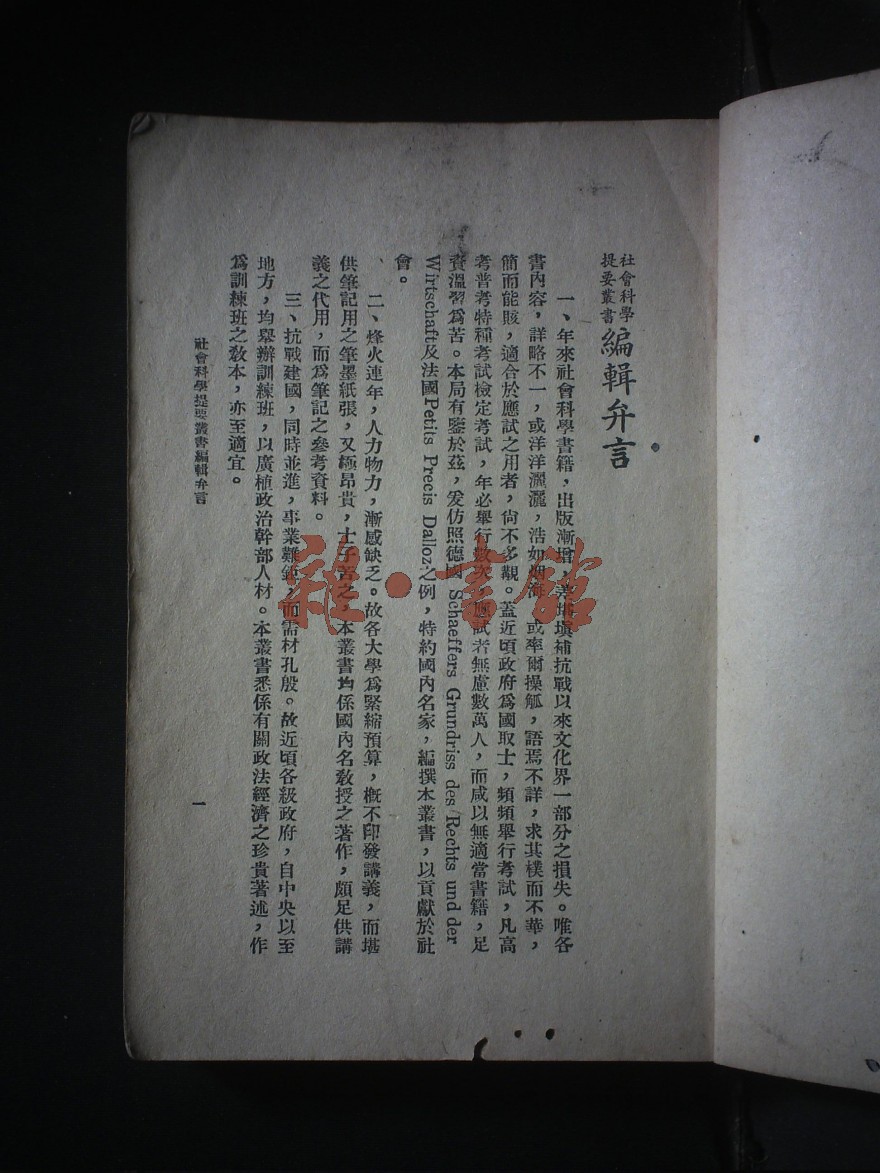 社會科學
提要叢書
編輯弁言
一、年來社會科學書籍，出版漸增，差堪填補抗戰以來文化界一部分之損失。唯各
書內容，詳略不一，或洋洋灑灑，浩如烟海，或率爾操觚，語焉不詳，求其樸而不華，
簡而能賅，適合於應試之用者，尙不多觀。蓋近頃政府爲國取士，頻頻舉行考試，凡高
考普考特種考試檢定考試，年必舉行數次，應試者無慮數萬人，而咸以無適當書籍，足
資溫習爲苦。本局有鑒於茲，爰仿照德國 Schaeffers Grundriss des Rechts und der
Wirtschaft及法國Petits Precis Dalloz之例，特約國內名家，編撰本叢書，以貢獻於社
會。
二、烽火連年，人力物力，漸感缺乏。故各大學爲緊縮預算，槪不印發講義，而堪
供筆記用之筆墨紙張，又極昂貴，士子苦之，本叢書均係國內名敎授之著作，頗足供講
義之代用，而爲筆記之參考資料。
三、抗戰建國，同時並進，事業難鉅，而需材孔殷。故近頃各級政府，自中央以至
地方，均舉辦訓練班，以廣植政治幹部人材。本叢書悉係有關政法經濟之珍貴著述，作
爲訓練班之敎本，亦至適宜。
社會科學提要叢書編輯弁言
一
雜·書館